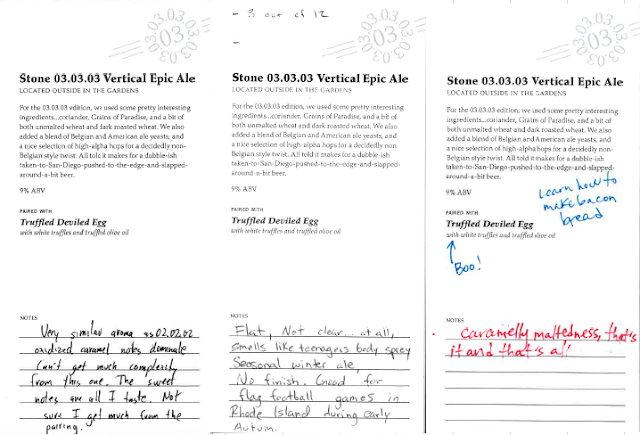 03.03.03
Stone 03.03.03 Vertical Epic Ale
LOCATED OUTSIDE IN THE GARDENS
For the 03.03.03 edition, we used some pretty interesting
ingredients...coriander, Grains of Paradise, and a bit of
both unmalted wheat and dark roasted wheat. We also
added a blend of Belgian and American ale yeasts, and
a nice selection of high-alpha hops for a decidedly non-
Belgian style twist. All told it makes for a dubble-ish
taken-to-San-Diego-pushed-to-the-edge-and-slapped-
around-a-bit beer.
9% ABV
PAIRED WITH
Truffled Deviled Egg
with white truffles and truffled olive oil
NOTES
Very similar aroma as 02.02.02
oxidized caramel notes dominate
Can't get much complexity
from this one. The sweet
notes are all I taste. Not
sure I get much from the
pairing.
- 3 out of 12
-
03.03.03
Stone 03.03.03 Vertical Epic Ale
LOCATED OUTSIDE IN THE GARDENS
For the 03.03.03 edition, we used some pretty interesting
ingredients...coriander, Grains of Paradise, and a bit of
both unmalted wheat and dark roasted wheat. We also
added a blend of Belgian and American ale yeasts, and
a nice selection of high-alpha hops for a decidedly non-
Belgian style twist. All told it makes for a dubble-ish
taken-to-San-Diego-pushed-to-the-edge-and-slapped-
around-a-bit beer.
9% ABV
PAIRED WITH
Truffled Deviled Egg
with white truffles and truffled olive oil
NOTES
Flat, Not clear... at all,
smells like teenagers body spray
Seasonal winter ale
No finish. Good for
flag football games in
Rhode Island during early
Autumn.
03.03.03
Stone 03.03.03 Vertical Epic Ale
LOCATED OUTSIDE IN THE GARDENS
For the 03.03.03 edition, we used some pretty interesting
ingredients...coriander, Grains of Paradise, and a bit of
both unmalted wheat and dark roasted wheat. We also
added a blend of Belgian and American ale yeasts, and
a nice selection of high-alpha hops for a decidedly non-
Belgian style twist. All told it makes for a dubble-ish
taken-to-San-Diego-pushed-to-the-edge-and-slapped-
around-a-bit beer.
9% ABV
Learn how to
make bacon
bread
PAIRED WITH
Truffled Deviled Egg
with white truffles and truffled olive oil
Boo!
NOTES
Caramelly maltedness, that's
it and that's al